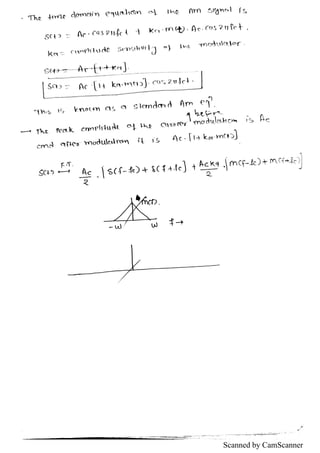 · The time domain equation of the Am signal is
S(t) = Ac · cos 2πfct + ka · m(t) · Ac · cos 2πfct ,
ka = amplitude sensitivity of the modulator .
S(t) = Ac [1 + ka].
S(t) = Ac [1 + ka·m(t)] · cos 2πfct .
This is known as a standard Am eqn.
before
→ The Peak amplitude of the carrier modulation is Ac
and after modulation it is Ac · [1 + ka m(t)]
S(t) F.T. ⟷ Ac/2 · [δ(f-fc) + δ(f+fc)] + Acka/2 · [m(f-fc) + m(f+fc)]
m(f).
-w w f→
Scanned by CamScanner